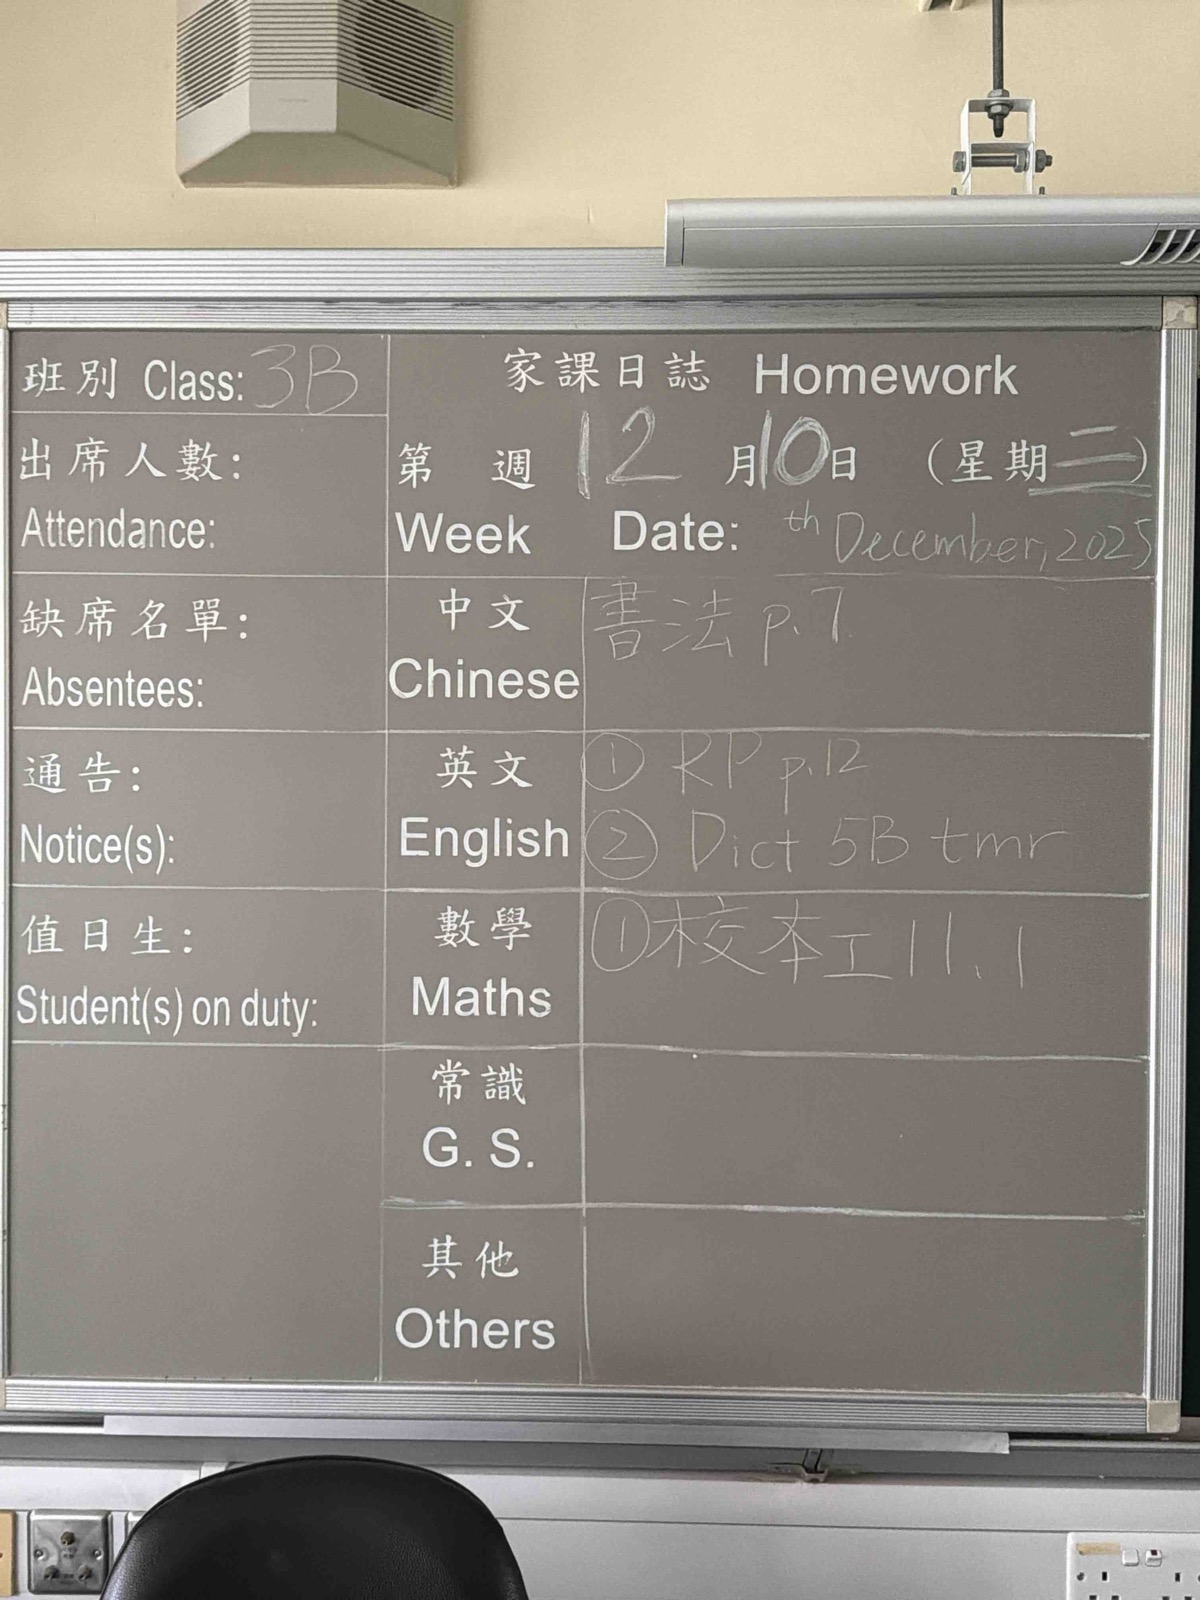 班別 Class: 3B
家課日誌 Homework
出席人數:
Attendance:
第 週 12 月 10 日 (星期二)
Week Date: th December, 2025
缺席名單:
Absentees:
中文
Chinese
書法 p.7
通告:
Notice(s):
英文
English
① RP p.12
② Dict 5B tmr
值日生:
Student(s) on duty:
數學
Maths
①校本工11.1
常識
G. S.
其他
Others